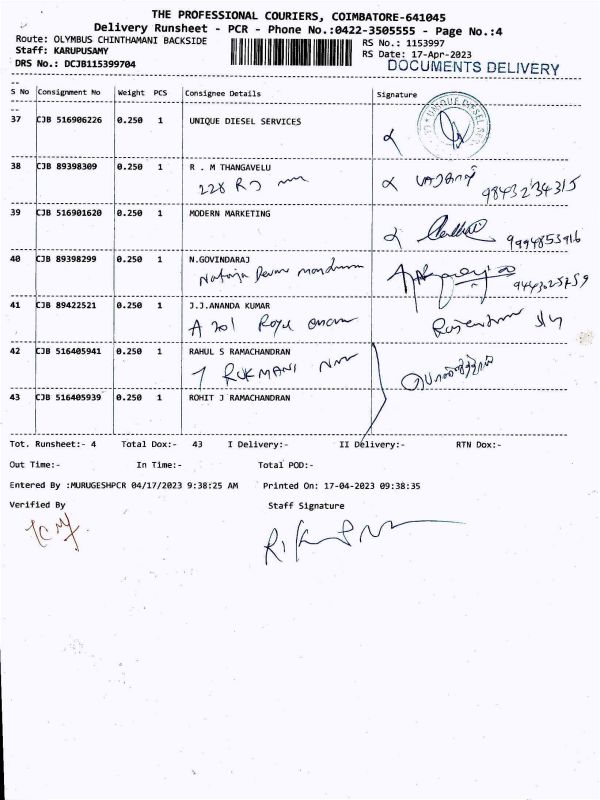 THE PROFESSIONAL COURIERS, COIMBATORE-641045
Delivery Runsheet - PCR - Phone No.:0422-3505555 - Page No.:4
Route: OLYMBUS CHINTHAMANI BACKSIDE RS No.: 1153997
Staff: KARUPUSAMY RS Date: 17-Apr-2023
DRS No.: DCJB115399704 DOCUMENTS DELIVERY
S No Consignment No Weight PCS Consignee Details Signature
37 CJB 516906226 0.250 1 UNIQUE DIESEL SERVICES
38 CJB 89398309 0.250 1 R . M THANGAVELU
228 9843234315
39 CJB 516901620 0.250 1 MODERN MARKETING
9994853916
40 CJB 89398299 0.250 1 N.GOVINDARAJ
9443025759
41 CJB 89422521 0.250 1 J.J.ANANDA KUMAR
A 201
42 CJB 516405941 0.250 1 RAHUL S RAMACHANDRAN
RUKMANI
43 CJB 516405939 0.250 1 ROHIT J RAMACHANDRAN
Tot. Runsheet:- 4 Total Dox:- 43 I Delivery:- II Delivery:- RTN Dox:-
Out Time:- In Time:- Total POD:-
Entered By :MURUGESHPCR 04/17/2023 9:38:25 AM Printed On: 17-04-2023 09:38:35
Verified By Staff Signature